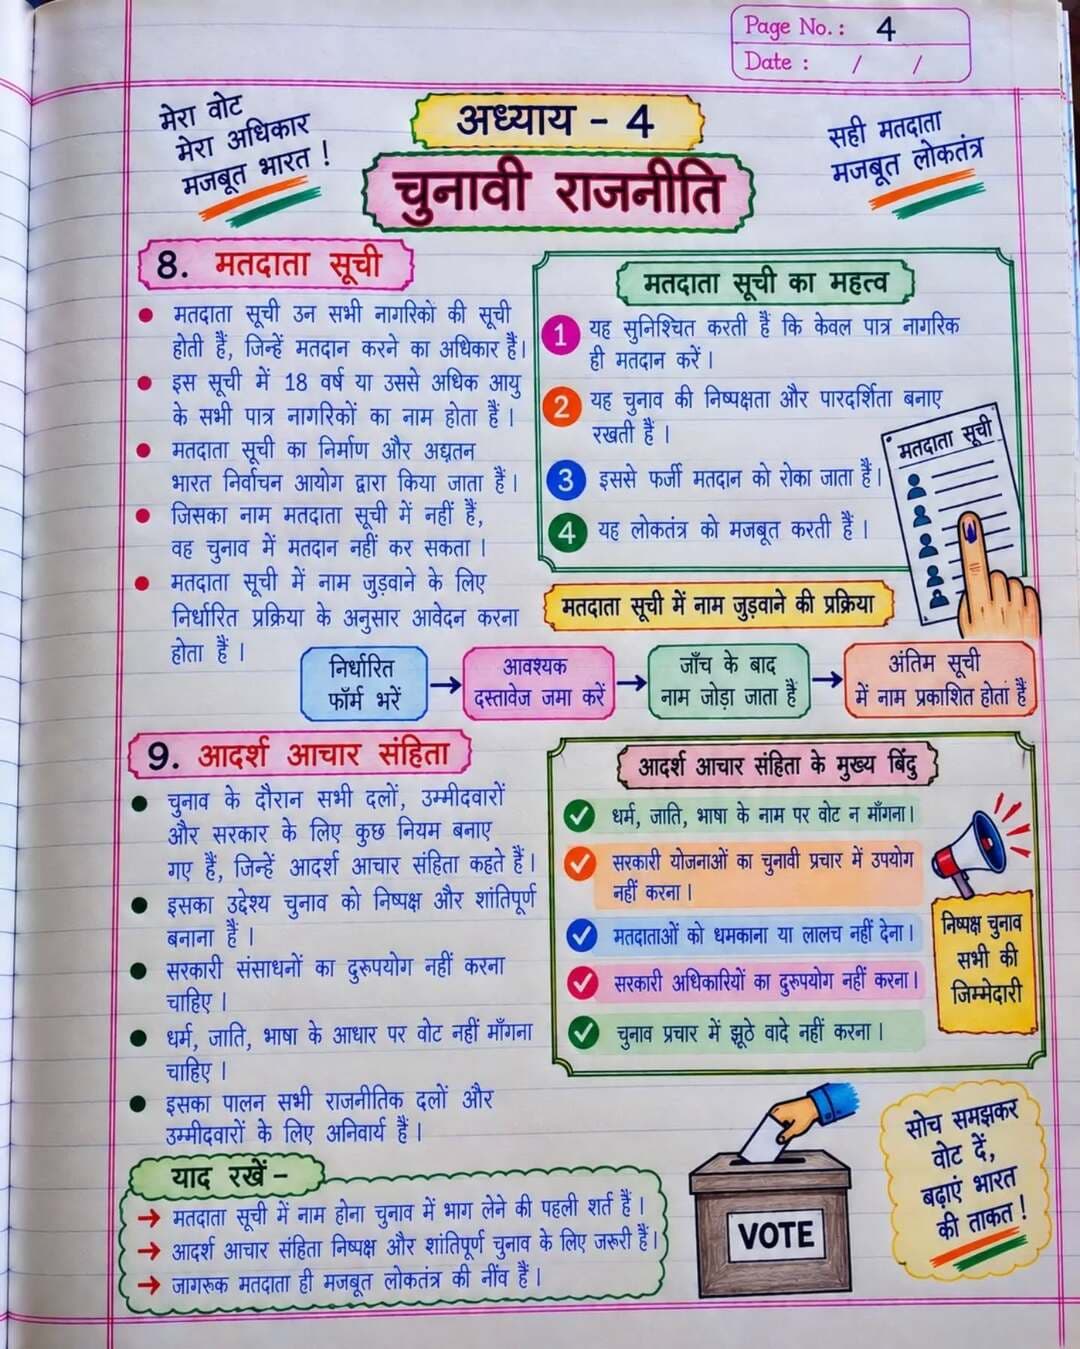 Page No.: 4
Date : / /
मेरा वोट
मेरा अधिकार
मजबूत भारत !
अध्याय - 4
चुनावी राजनीति
सही मतदाता
मजबूत लोकतंत्र
8. मतदाता सूची
मतदाता सूची उन सभी नागरिकों की सूची
होती हैं, जिन्हें मतदान करने का अधिकार हैं।
इस सूची में 18 वर्ष या उससे अधिक आयु
के सभी पात्र नागरिकों का नाम होता हैं।
मतदाता सूची का निर्माण और अद्यतन
भारत निर्वाचन आयोग द्वारा किया जाता हैं।
जिसका नाम मतदाता सूची में नहीं हैं,
वह चुनाव में मतदान नहीं कर सकता।
मतदाता सूची में नाम जुड़वाने के लिए
निर्धारित प्रक्रिया के अनुसार आवेदन करना
होता हैं।
मतदाता सूची का महत्व
1 यह सुनिश्चित करती हैं कि केवल पात्र नागरिक
ही मतदान करें।
2 यह चुनाव की निष्पक्षता और पारदर्शिता बनाए
रखती हैं।
3 इससे फर्जी मतदान को रोका जाता हैं।
4 यह लोकतंत्र को मजबूत करती हैं।
मतदाता सूची
मतदाता सूची में नाम जुड़वाने की प्रक्रिया
निर्धारित
फॉर्म भरें
→
आवश्यक
दस्तावेज जमा करें
→
जाँच के बाद
नाम जोड़ा जाता हैं
→
अंतिम सूची
में नाम प्रकाशित होता हैं
9. आदर्श आचार संहिता
चुनाव के दौरान सभी दलों, उम्मीदवारों
और सरकार के लिए कुछ नियम बनाए
गए हैं, जिन्हें आदर्श आचार संहिता कहते हैं।
इसका उद्देश्य चुनाव को निष्पक्ष और शांतिपूर्ण
बनाना हैं।
सरकारी संसाधनों का दुरूपयोग नहीं करना
चाहिए।
धर्म, जाति, भाषा के आधार पर वोट नहीं माँगना
चाहिए।
इसका पालन सभी राजनीतिक दलों और
उम्मीदवारों के लिए अनिवार्य हैं।
आदर्श आचार संहिता के मुख्य बिंदु
धर्म, जाति, भाषा के नाम पर वोट न माँगना।
सरकारी योजनाओं का चुनावी प्रचार में उपयोग
नहीं करना।
मतदाताओं को धमकाना या लालच नहीं देना।
सरकारी अधिकारियों का दुरूपयोग नहीं करना।
चुनाव प्रचार में झूठे वादे नहीं करना।
निष्पक्ष चुनाव
सभी की
जिम्मेदारी
याद रखें -
→ मतदाता सूची में नाम होना चुनाव में भाग लेने की पहली शर्त हैं।
→ आदर्श आचार संहिता निष्पक्ष और शांतिपूर्ण चुनाव के लिए जरूरी हैं।
→ जागरूक मतदाता ही मजबूत लोकतंत्र की नींव हैं।
VOTE
सोच समझकर
वोट दें,
बढ़ाएं भारत
की ताकत!